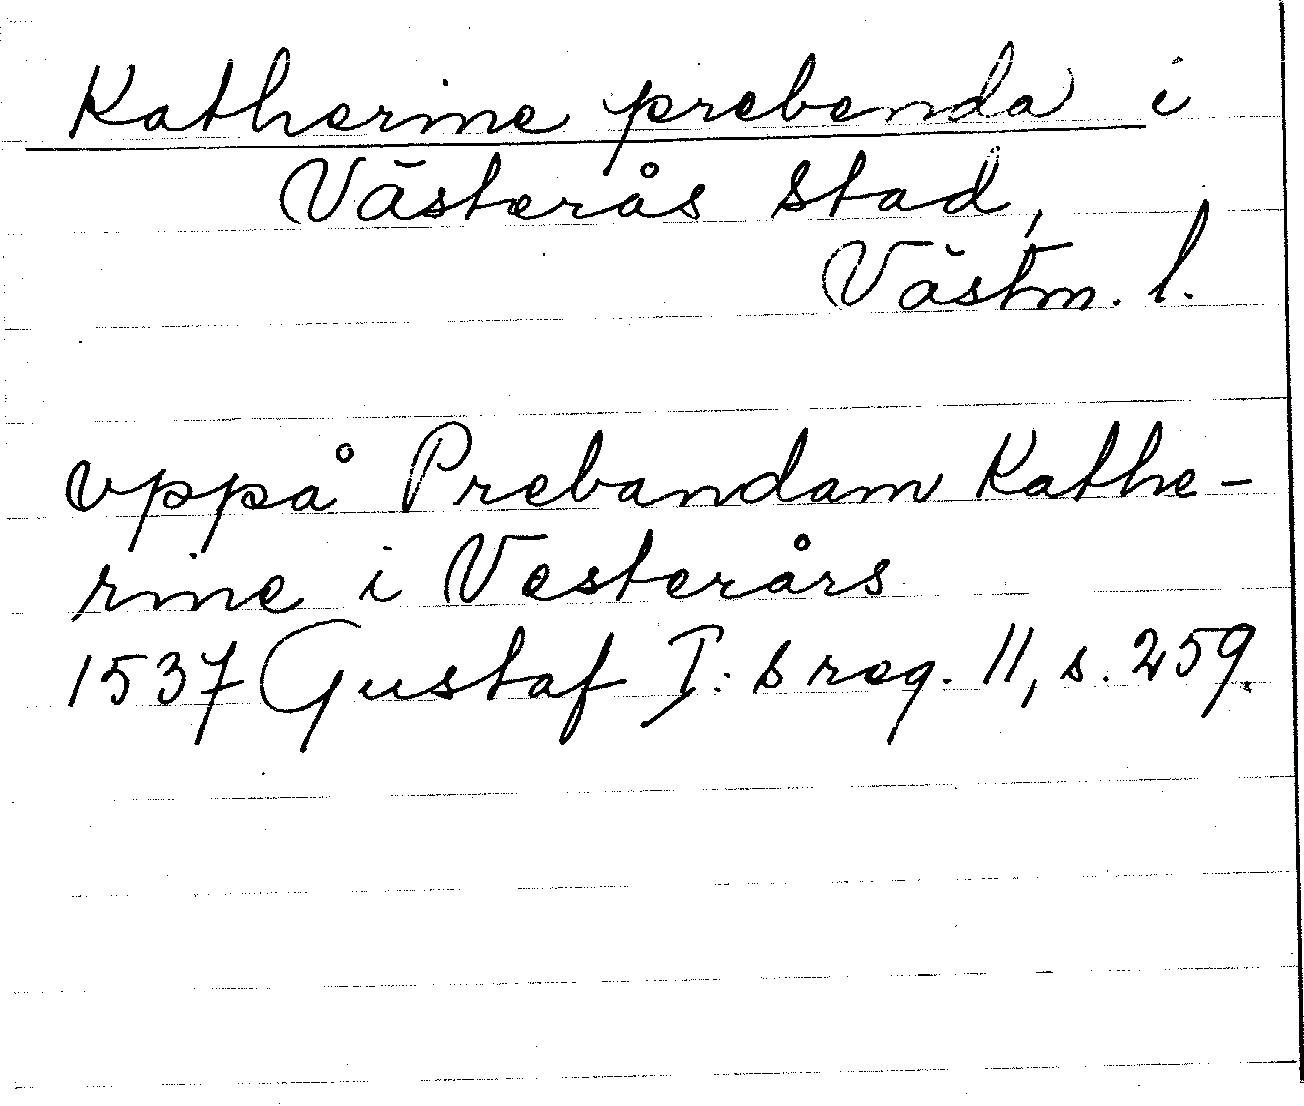 Katherine prebenda i
Västerås stad,
Västm. l.
vppå Prebandam Kathe-
rine i Vesterårs
1537 Gustaf I:s reg. 11, s. 259.